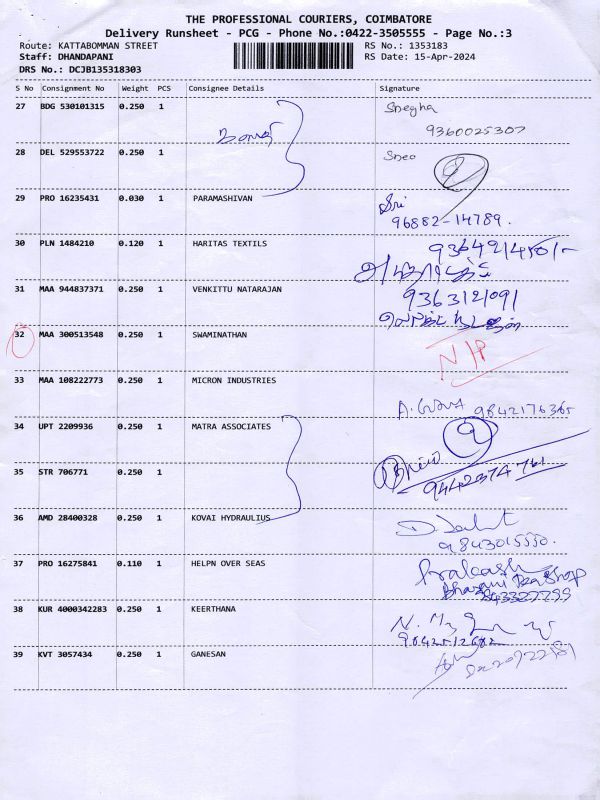 THE PROFESSIONAL COURIERS, COIMBATORE
Delivery Runsheet - PCG - Phone No.:0422-3505555 - Page No.:3
Route: KATTABOMMAN STREET RS No.: 1353183
Staff: DHANDAPANI RS Date: 15-Apr-2024
DRS No.: DCJB135318303
S No Consignment No Weight PCS Consignee Details Signature
27 BDG 530101315 0.250 1 Snegha
9360025307
28 DEL 529553722 0.250 1 Sneo
29 PRO 16235431 0.030 1 PARAMASHIVAN Sri
96882-14789.
30 PLN 1484210 0.120 1 HARITAS TEXTILS
31 MAA 944837371 0.250 1 VENKITTU NATARAJAN 9363121091
32 MAA 300513548 0.250 1 SWAMINATHAN N/P
33 MAA 108222773 0.250 1 MICRON INDUSTRIES
9842176365
34 UPT 2209936 0.250 1 MATRA ASSOCIATES
35 STR 706771 0.250 1
9442374761
36 AMD 28400328 0.250 1 KOVAI HYDRAULIUS
9843015550.
37 PRO 16275841 0.110 1 HELPN OVER SEAS Prakash
38 KUR 4000342283 0.250 1 KEERTHANA
39 KVT 3057434 0.250 1 GANESAN